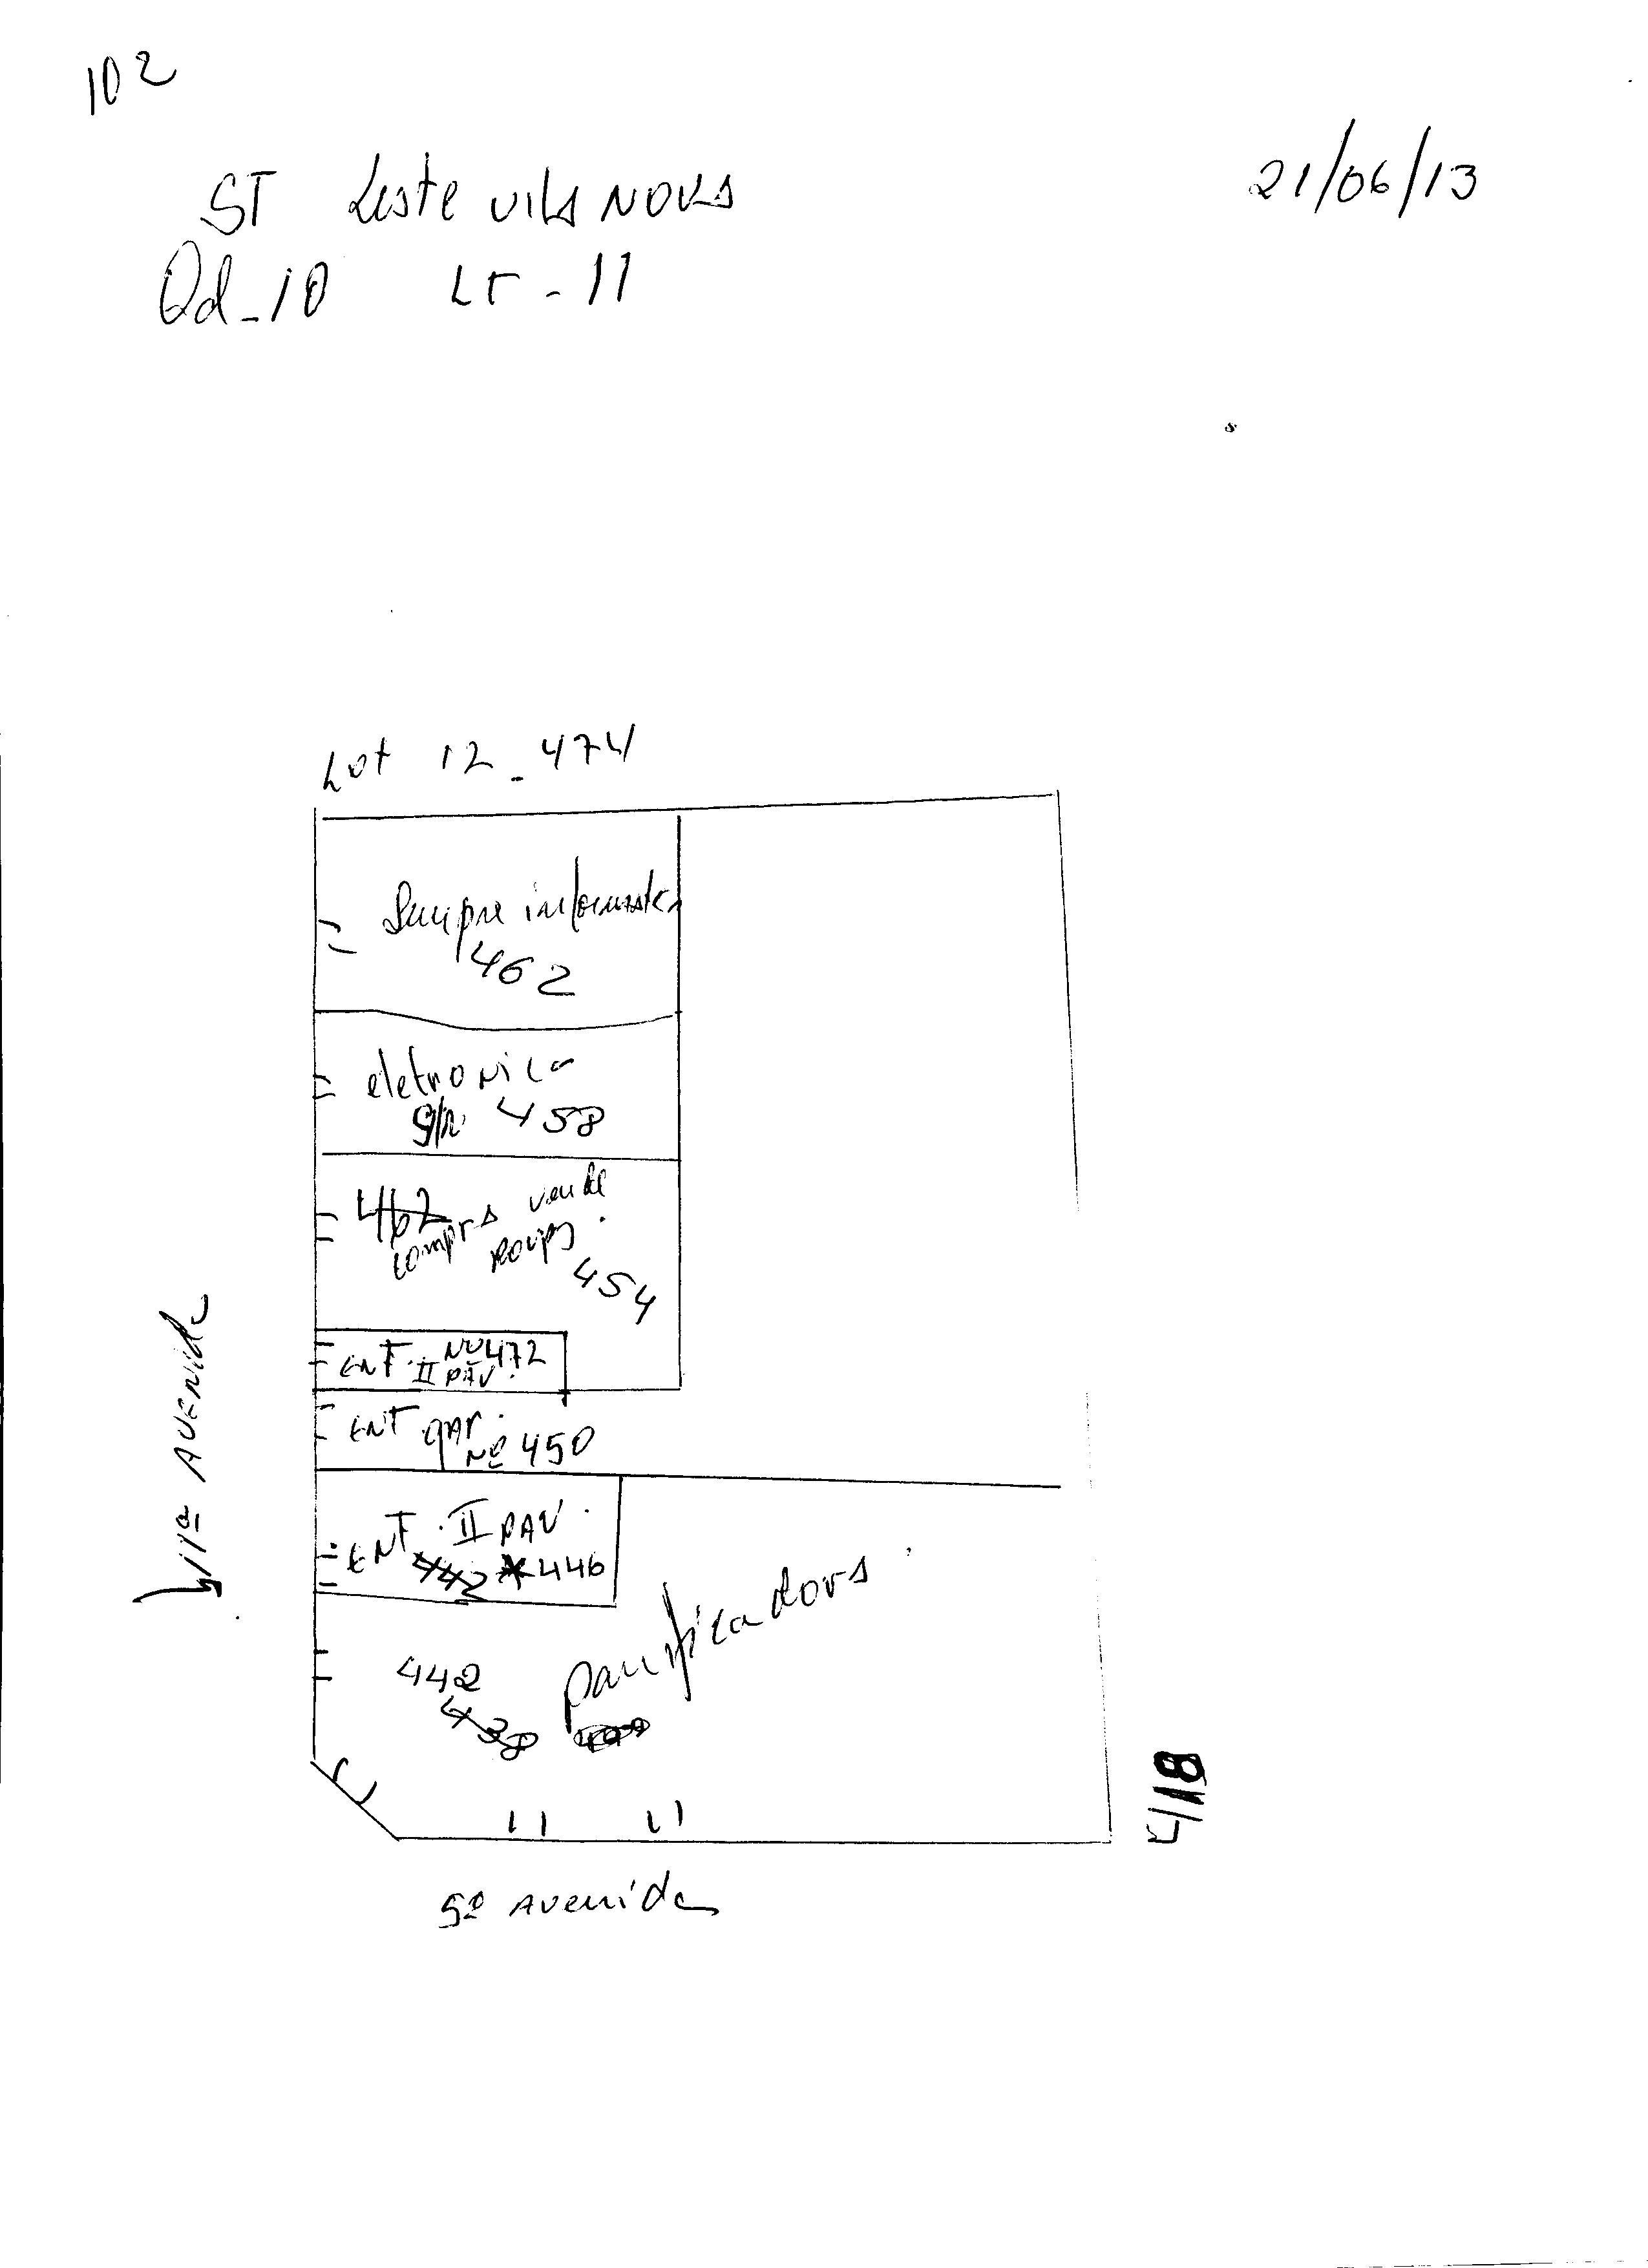 102
21/06/13
ST Leste vila Nova
Qd-10 Lt - 11
Lot 12 - 474
Sempre informatica
462
eletronica
S/N 458
462 vende
compra roupas
454
ENT. II PAV. Nº 472
ENT gar.
Nº 450
ENT. II PAV.
442 446
11ª Avenida
panificadora
442
438
4/18
5ª Avenida